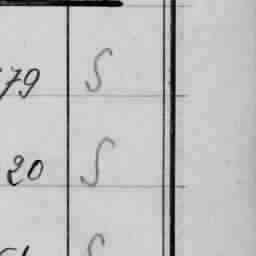 79 S
20 S